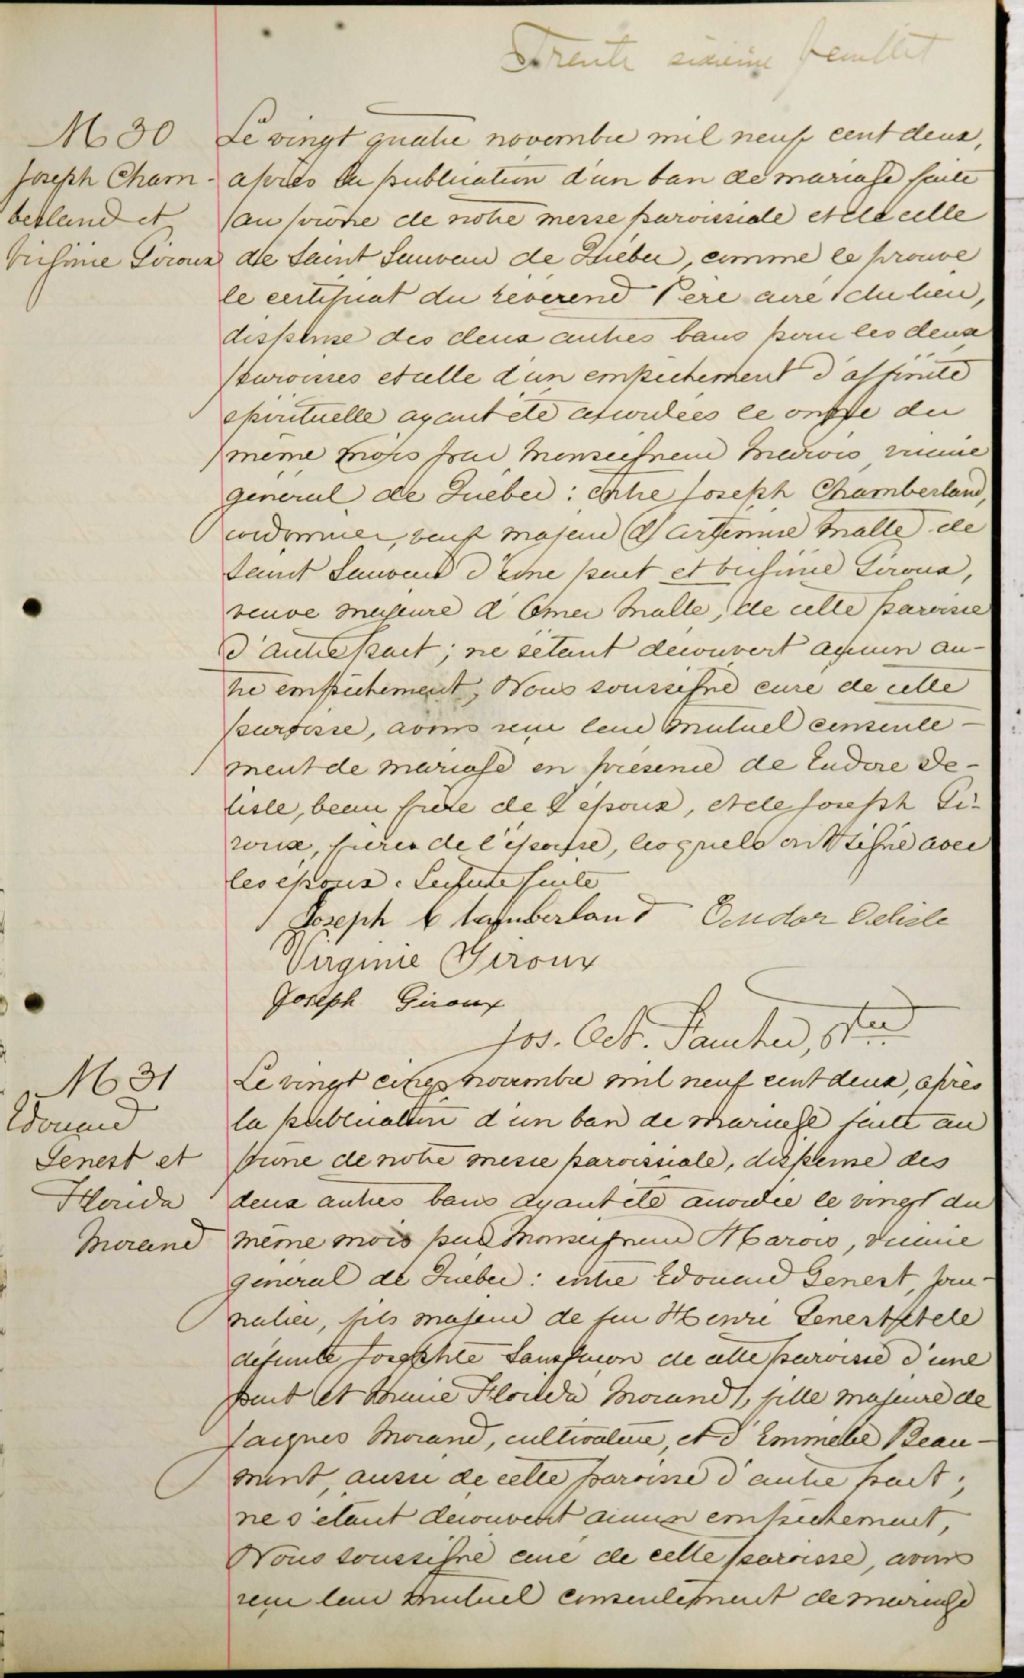 Trente sixième feuillet
M 30
Joseph Cham-
berland et
Virginie Giroux
Le vingt quatre novembre mil neuf cent deux,
après la publication d'un ban de mariage faite
au prône de notre messe paroissiale et de celle
de Saint Sauveur de Québec, comme le prouve
le certificat du révérend Père curé du lieu,
dispense des deux autres bans pour les deux
paroisses et celle d'un empêchement d'affinité
spirituelle ayant été accordées le onze du
même mois par Monseigneur Marois, vicaire
général de Québec : entre Joseph Chamberland,
cordonnier, veuf majeur d'Artémise Matte de
Saint Sauveur d'une part et Virginie Giroux,
veuve majeure d'Omer Matte, de cette paroisse
d'autre part ; ne s'étant découvert aucun au-
tre empêchement, Nous soussigné curé de cette
paroisse, avons reçu leur mutuel consente-
ment de mariage en présence de Eudore De-
lisle, beau frère de l'époux, et de Joseph Gi-
roux, frère de l'épouse, lesquels ont signé avec
les époux. Lecture faite
Joseph Chamberland Eudor Delisle
Virginie Giroux
Joseph Giroux
Jos. Oct. Faucher, Ptre
M 31
Edouard
Genest et
Florida
Morand
Le vingt cinq novembre mil neuf cent deux, après
la publication d'un ban de mariage faite au
prône de notre messe paroissiale, dispense des
deux autres bans ayant été accordée le vingt du
même mois par Monseigneur Marois, vicaire
général de Québec : entre Edouard Genest, jour-
nalier, fils majeur de feu Henri Genest et de
défunte Josephte Sansfaçon de cette paroisse d'une
part et Marie Florida Morand, fille majeure de
Jacques Morand, cultivateur, et d'Emmélie Beau-
mont, aussi de cette paroisse d'autre part ;
ne s'étant découvert aucun empêchement,
Nous soussigné curé de cette paroisse, avons
reçu leur mutuel consentement de mariage